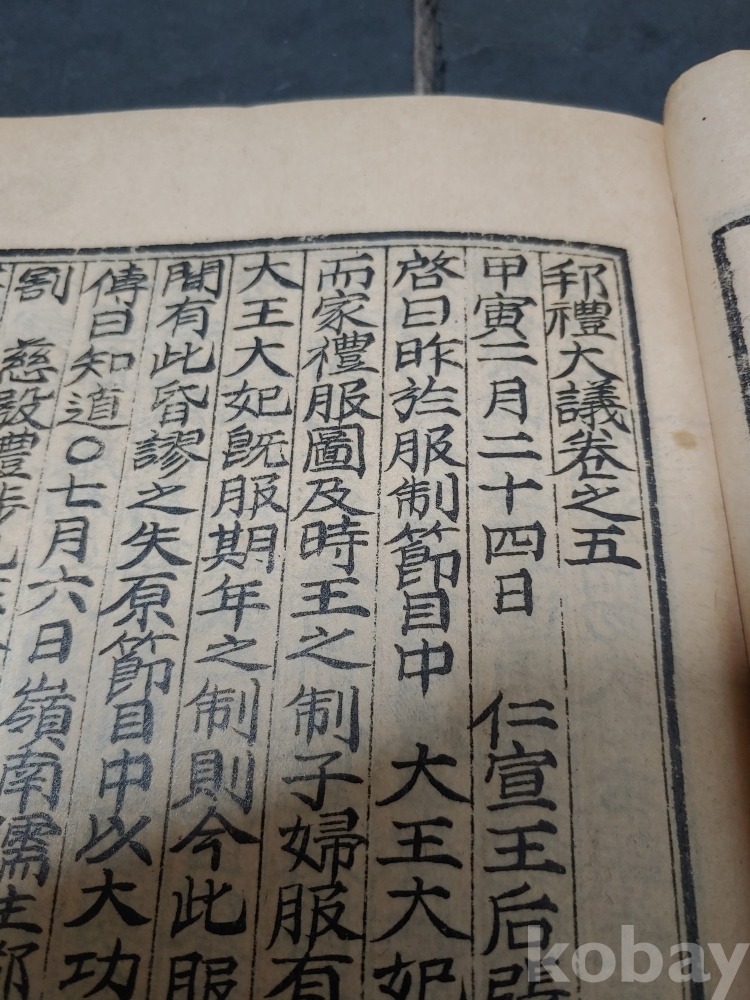 邦禮大議卷之五
甲寅二月二十四日 仁宣王后
啓曰昨於服制節目中 大王大妃
而家禮服圖及時王之制子婦服有
大王大妃旣服期年之制則今此服
聞有此昏謬之失原節目中以大功
傳曰知道○七月六日嶺南儒生
割 慈殿禮
kobay